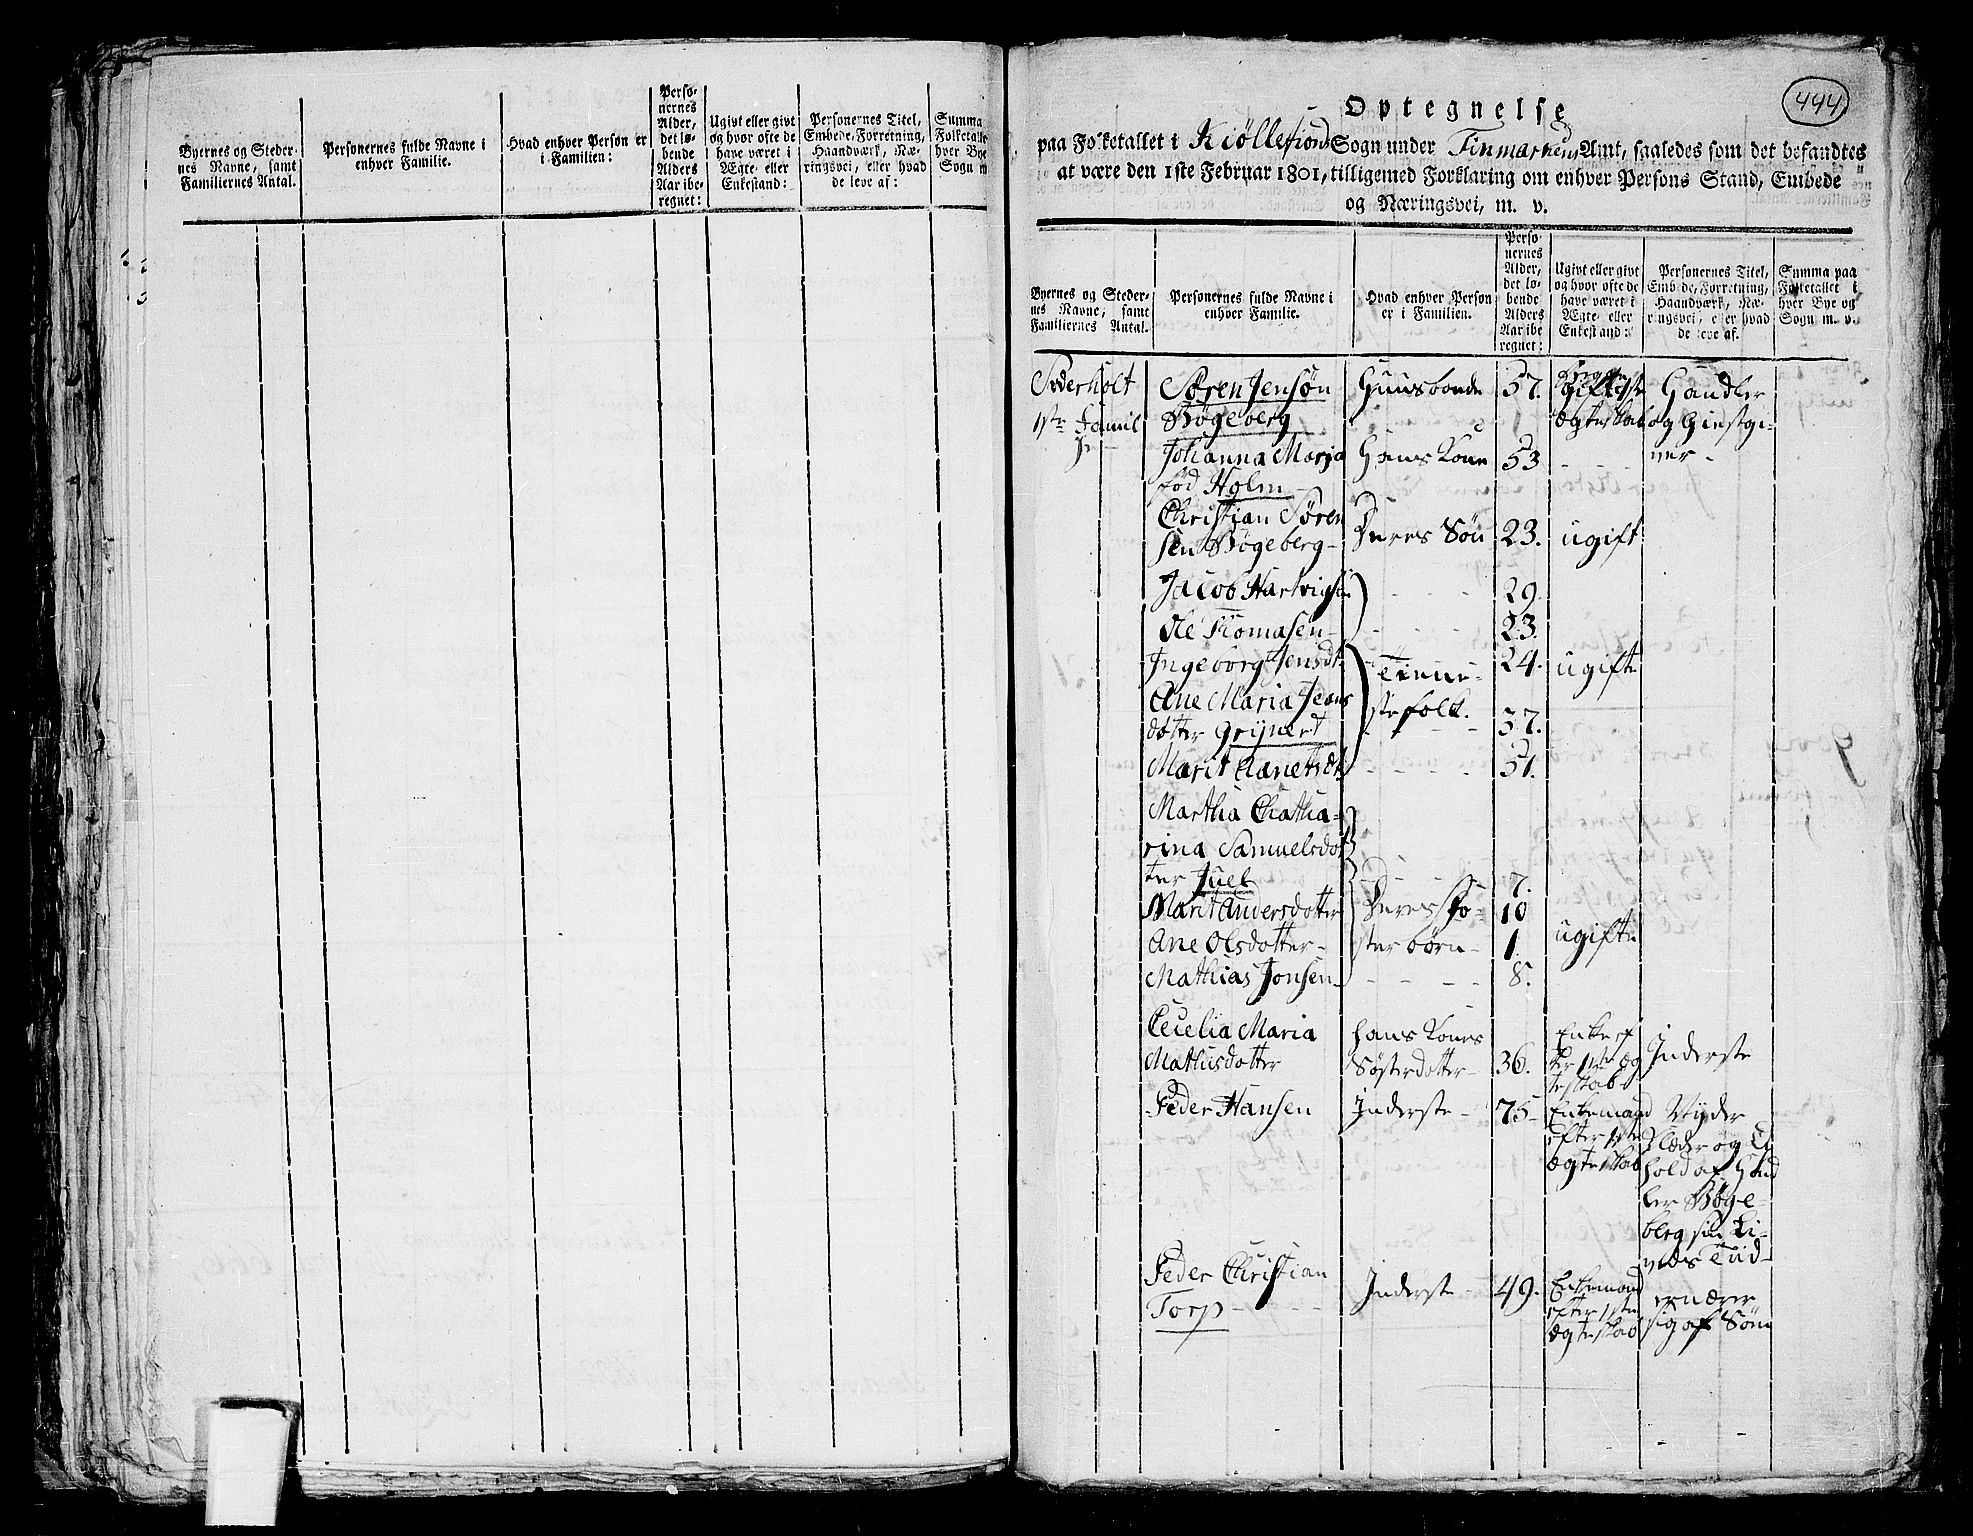 Byernes og Steder-
nes Navne, samt
Familiernes Antal.
Personernes fulde Navne i
enhver Familie.
Hvad enhver Person er
i Familien:
Perso-
nernes
Alder,
det lø-
bende
Alders
Aar ibe-
regnet:
Ugivt eller givt
og hvor ofte de
have været i
Ægte- eller
Enkestand:
Personernes Titel,
Embede, Forretning,
Haandværk, Næ-
ringsvei, eller hvad
de leve af:
Summa
Folketallet
hver Bye
Sogn m
444
Optegnelse
paa Folketallet i Kiøllefiord Sogn under Finmarkens Amt, saaledes som det befandtes
at være den 1ste Februar 1801, tilligemed Forklaring om enhver Persons Stand, Embede
og Næringsvei, m. v.
Byernes og Steder-
nes Navne, samt
Familiernes Antal.
Personernes fulde Navne i
enhver Familie.
Hvad enhver Person
er i Familien.
Perso-
nernes
Alder,
det lø-
bende
Alders
Aar ibe-
regnet:
Ugivt eller givt
og hvor ofte de
have været i
Ægte- eller
Enkestand:
Personernes Titel,
Embede, Forretning,
Haandværk, Næ-
ringsvei, eller hvad
de leve af.
Summa paa
Folketallet i
hver Bye og
Sogn m. v.
Søren Jensøn Huusbonde 57. Handler
1ste Famil Bøgeberg Ægteskab og Giestgi-
Johanna Maria Hans Kone 53 ver
fød Holm
Christian Søren
sen Bøgeberg Deres Søn 23. ugift
Jacob Hartvigsen 29
Ole Thomasen 23.
Ingeborg Jensdt. Tiene- 24. ugifte
Ane Maria Jens
dotter stefolk. 37.
Marit 51.
Martha Chatha-
rina Samuelsdot
ter Juel 7.
Marit Andersdotter Deres Fo- 10
Ane Olsdotter ster børn 1. ugifte
Mathias Jonsen 8.
Cecelia Maria hans Kones Enke ef
Mathisdotter Søsterdotter 36. ter 1ste Æg Inderste
teskab
Peder Hansen Inderste 75 Enkemand Nyder
efter 1ste Klæder og
Ægteskab hold af Hand
ler Bøge-
berg sin Li-
vves Tiid
Peder Christian Inderste 49. Enkemand ernærer
Torp efter 1ste sig af Søen
Ægteskab